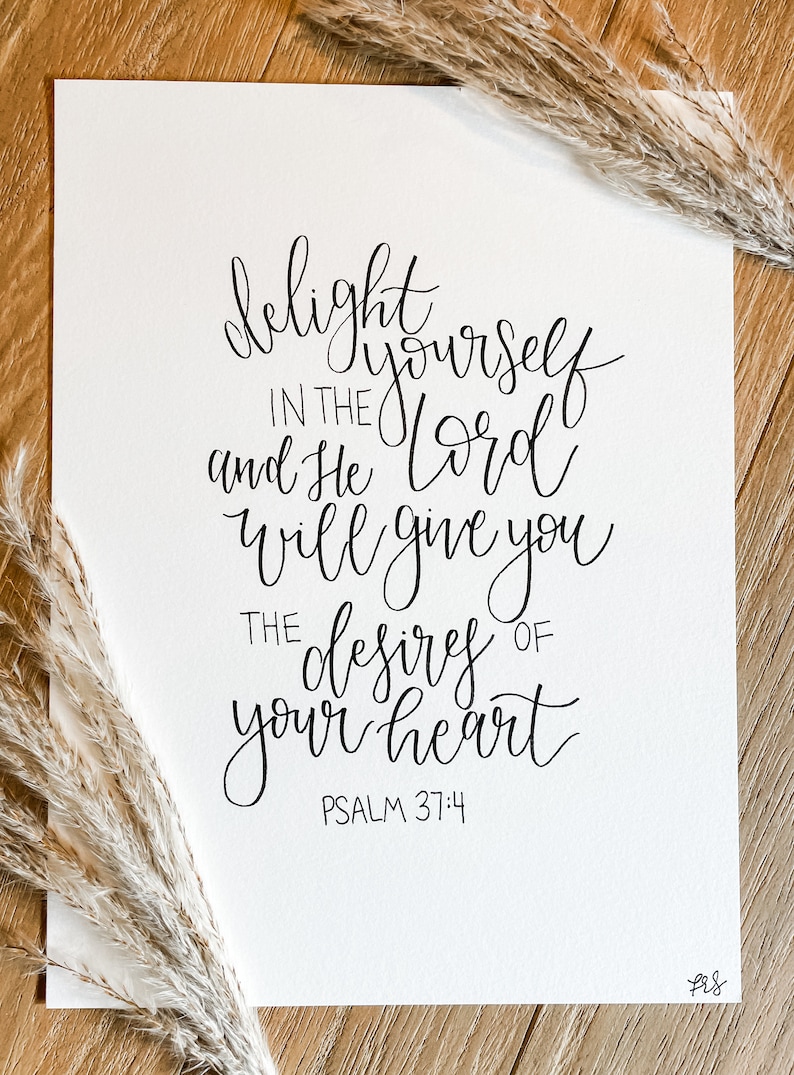 delight
yourself
IN THE
and He Lord
will give you
THE desires OF
your heart
PSALM 37:4